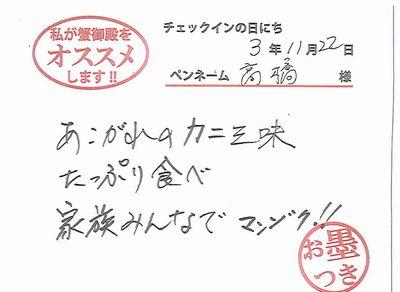 私が蟹御殿を
オススメ
します!!
チェックインの日にち
3年11月22日
ペンネーム 高橋 様
あこがれのカニ三味
たっぷり食べ
家族みんなで マンゾク!!
お墨
つき